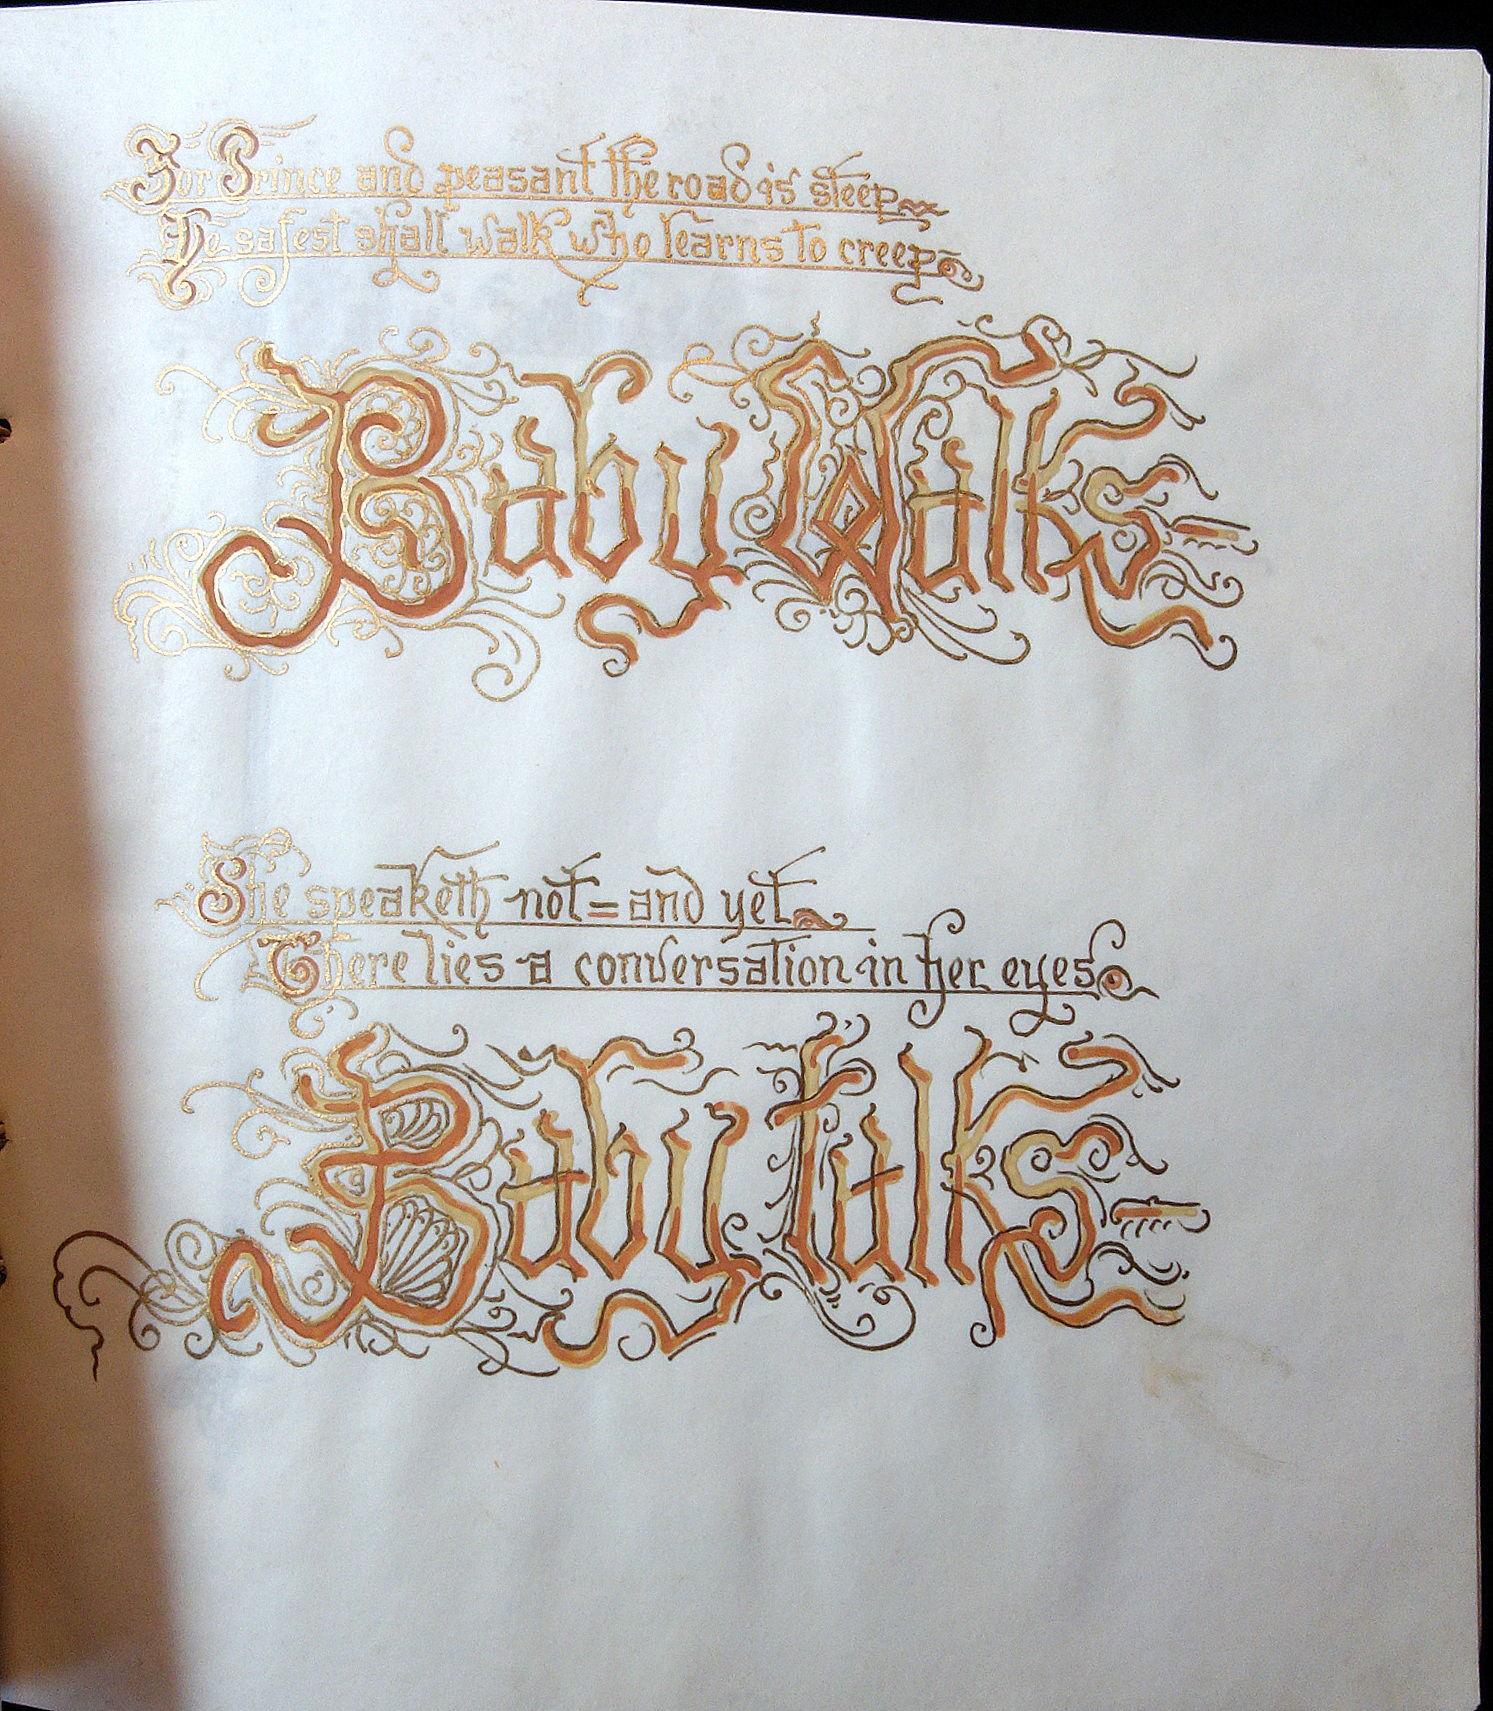 For Prince and peasant the road is steep
He safest shall walk who learns to creep
Baby Walks –
She speaketh not = and yet
There lies a conversation in her eyes.
Baby talks –